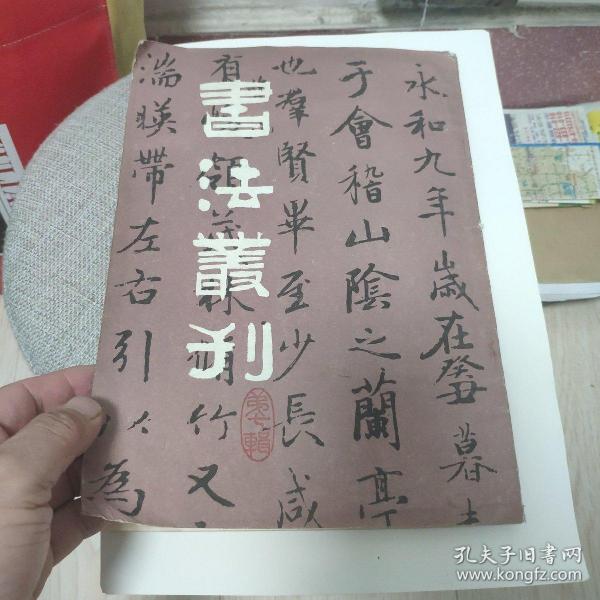 書法叢刊
第七輯
永和九年歲在癸丑暮
于會稽山陰之蘭亭
也羣賢畢至少長咸
有領茂林脩竹又
湍暎帶左右引以為
孔夫子旧书网
www.kongfz.com